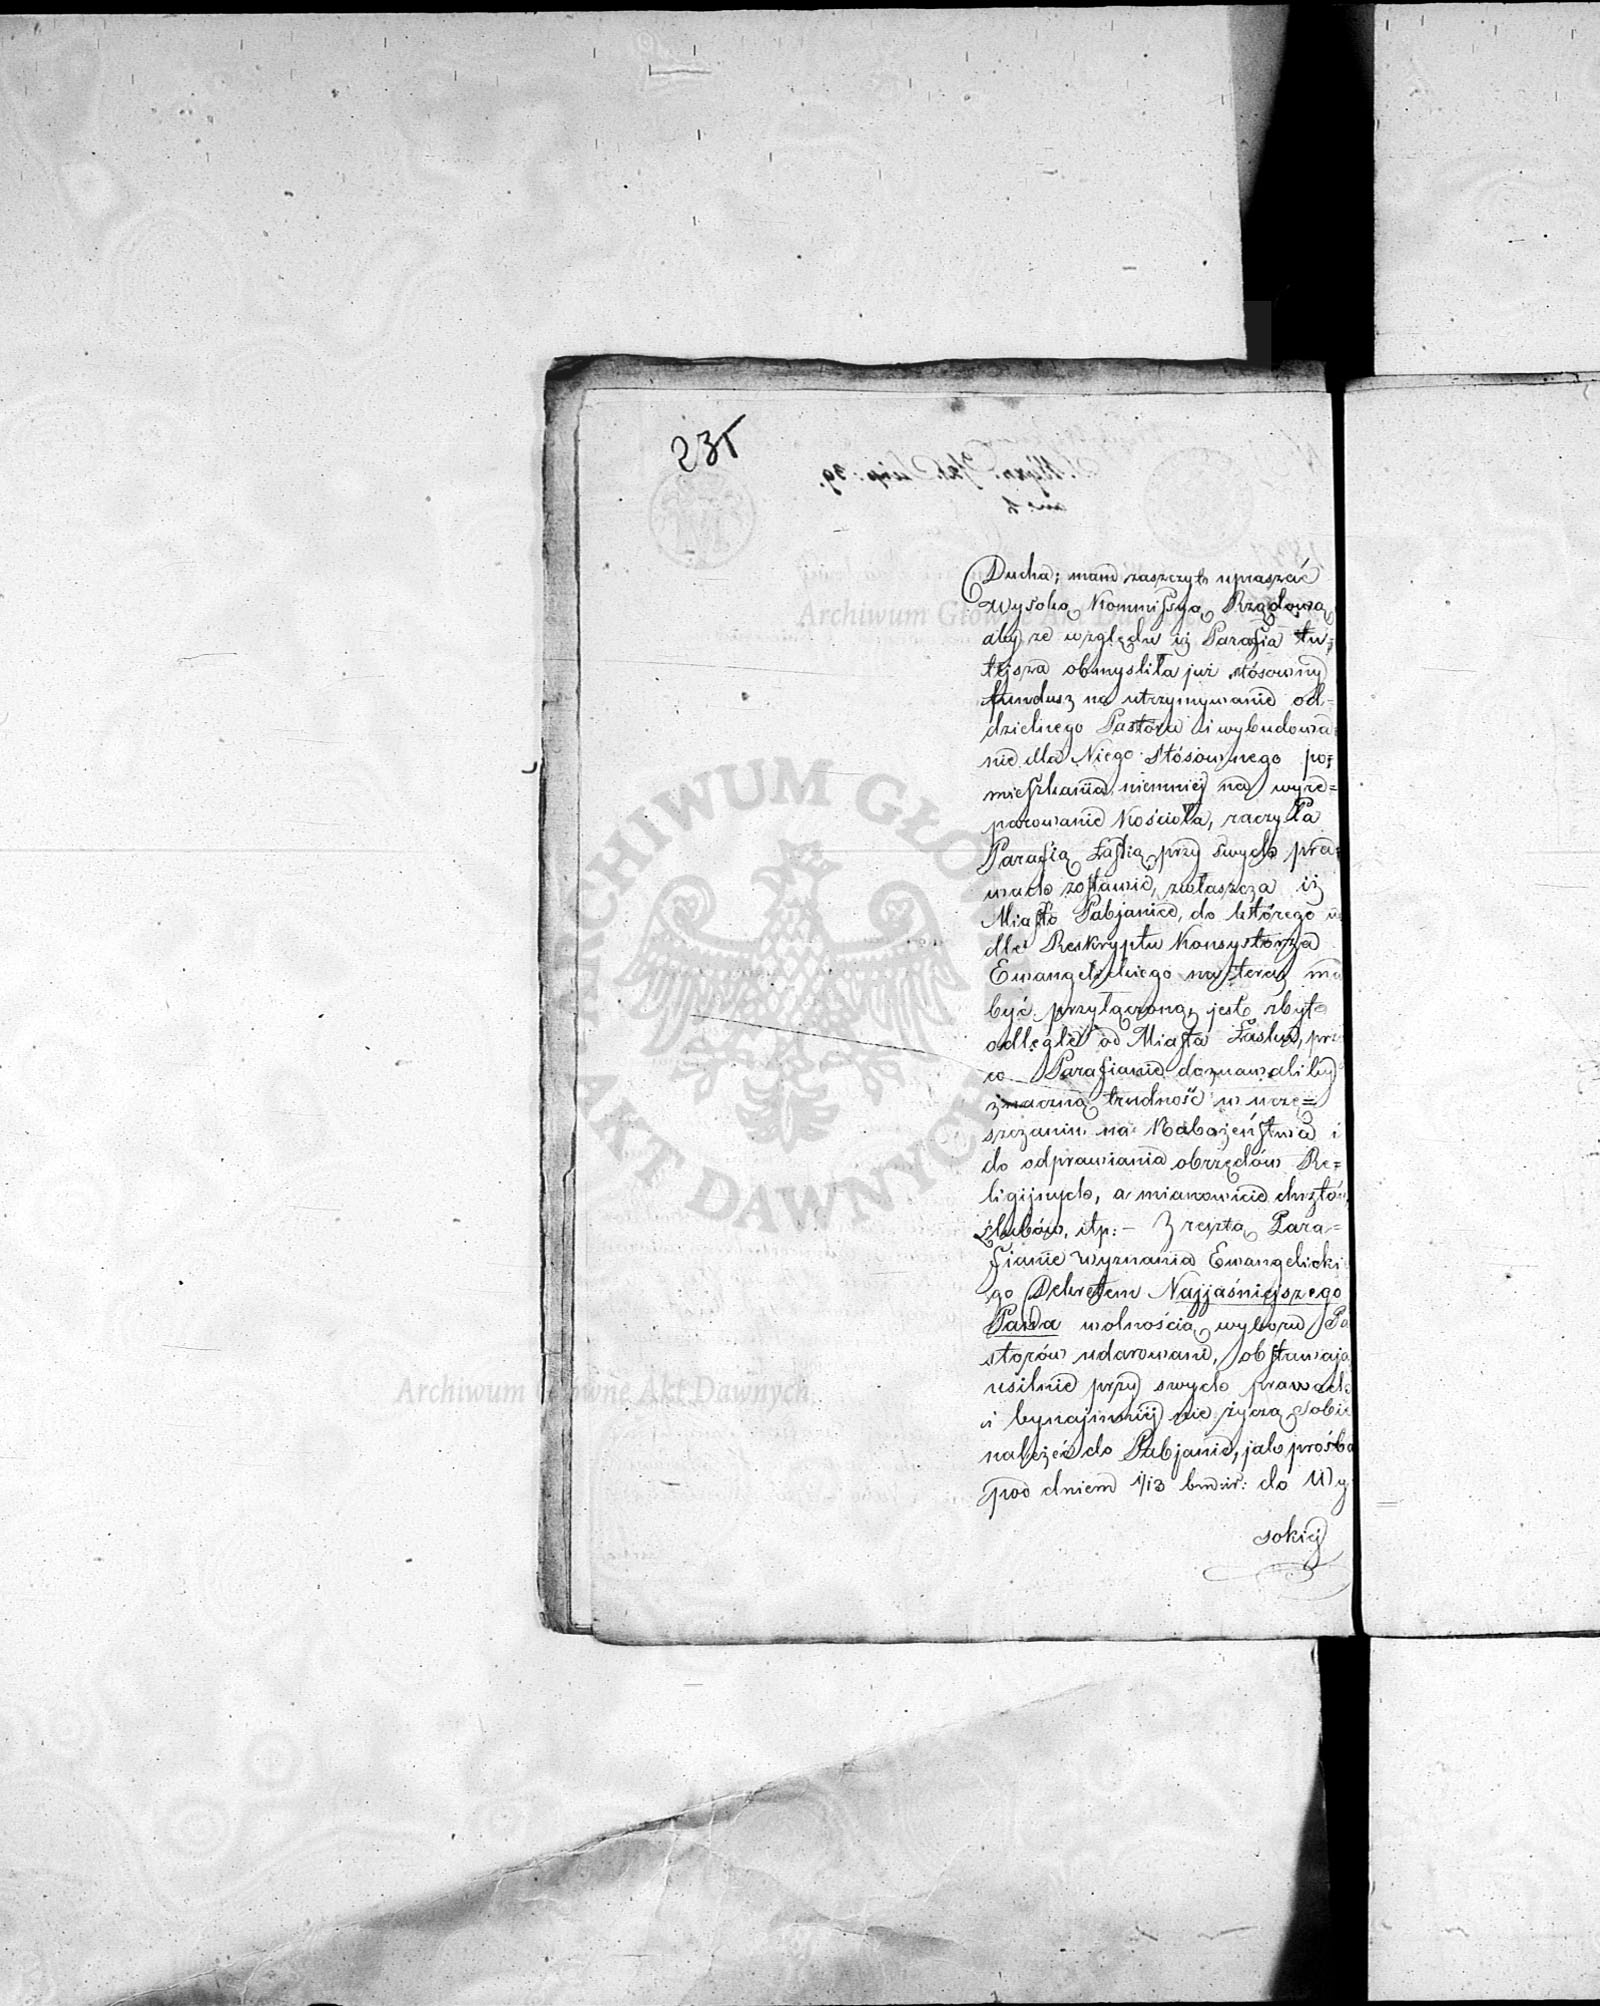 235
Ducha; mam zaszczyt upraszać
Wysoką Kommissyą Rządową
aby ze względu iż Parafia tu=
tejsza obmyśliła już stósowny
fundusz na utrzymywanie od=
dzielnego Pastora i wybudowa=
nie dla Niego stósownego po=
mieszkania, niemniej na wyre=
parowanie Kościoła, raczyła
Parafią Łaską przy swych pra=
wach zostawić, zwłaszcza iż
Miasto Pabjanice, do którego
dle Reskryptu Konsystorza
Ewangelickiego na teraz ma
być przyłączoną, jest zbyt
odległe od Miasta Łasku, prze
co Parafianie doznawaliby
znaczną trudność w uczę=
szczaniu na Nabożeństwa i
do odprawiania obrzędów Re=
ligijnych, a mianowicie chrztów
ślubów, itp: – Z resztą Para=
fianie wyznania Ewangelicki
go Dekretem Najjaśniejszego
Pana wolnością wyboru Pa
storów udarowani, obstawają
usilnie przy swych prawach
i bynajmniej nie życzą sobie
należeć do Pabjanic, jak prośba
pod dniem 1/13 bm: ir: do Wy
sokiej
ARCHIWUM GŁÓWNE AKT DAWNYCH
Archiwum Główne Akt Dawnych
Archiwum Główne Akt Dawnych